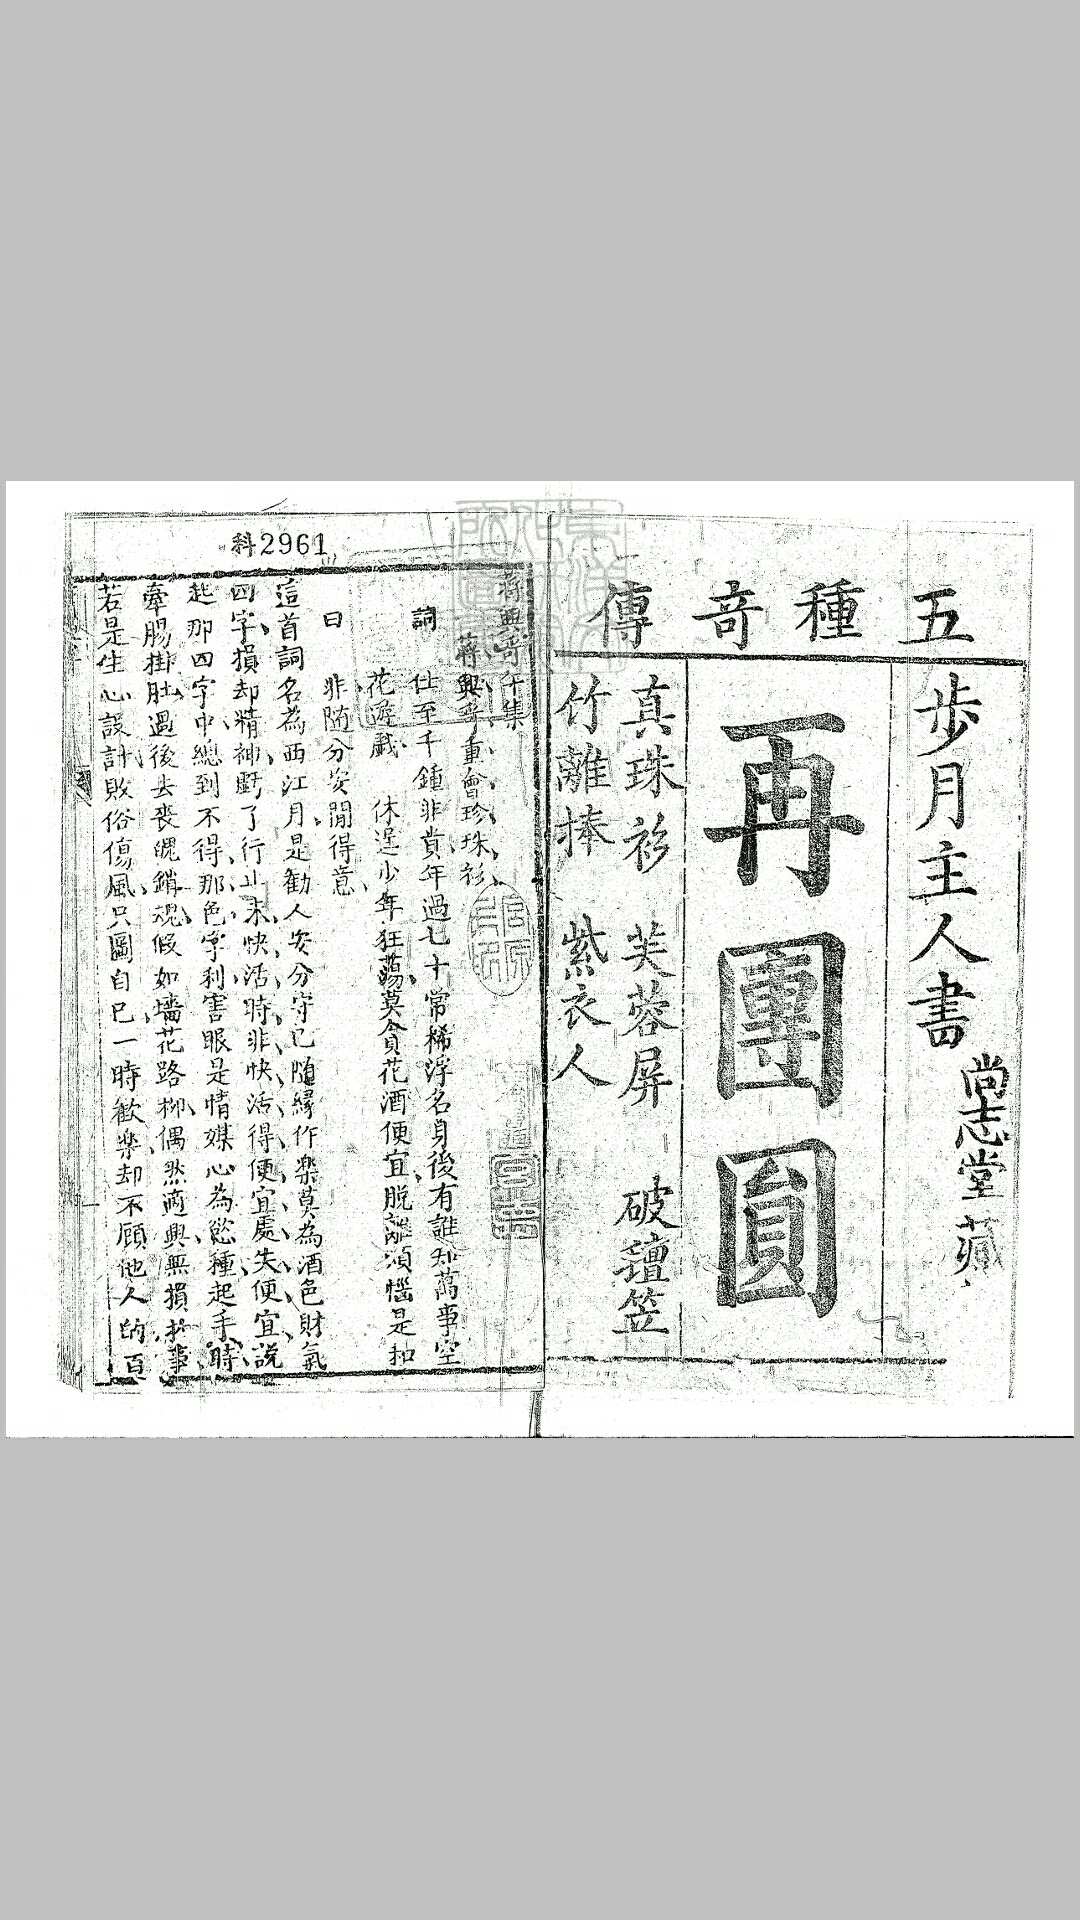 五種奇傳
步月主人書
尚志堂藏
再團圓
真珠衫 芙蓉屏 破氊笠
竹籬捧 紫衣人
科2961
蔣興哥重會珍珠衫
詞 仕至千鍾非貴年過七十常稀浮名身後有誰知萬事空
花遊戲 休逞少年狂蕩莫貪花酒便宜脫離煩惱是和
曰 非隨分安閒得意
這首詞名為西江月是勸人安分守己隨緣作樂莫為酒色財氣
四字損却精神虧了行止求快活時非快活得便宜處失便宜說
起那四字中總到不得那色字利害眼是情媒心為慾種起手時
牽腸掛肚過後去喪魄銷魂假如墻花路柳偶然適興無損於事
若是生心設計敗俗傷風只圖自已一時歡樂却不顧他人的百